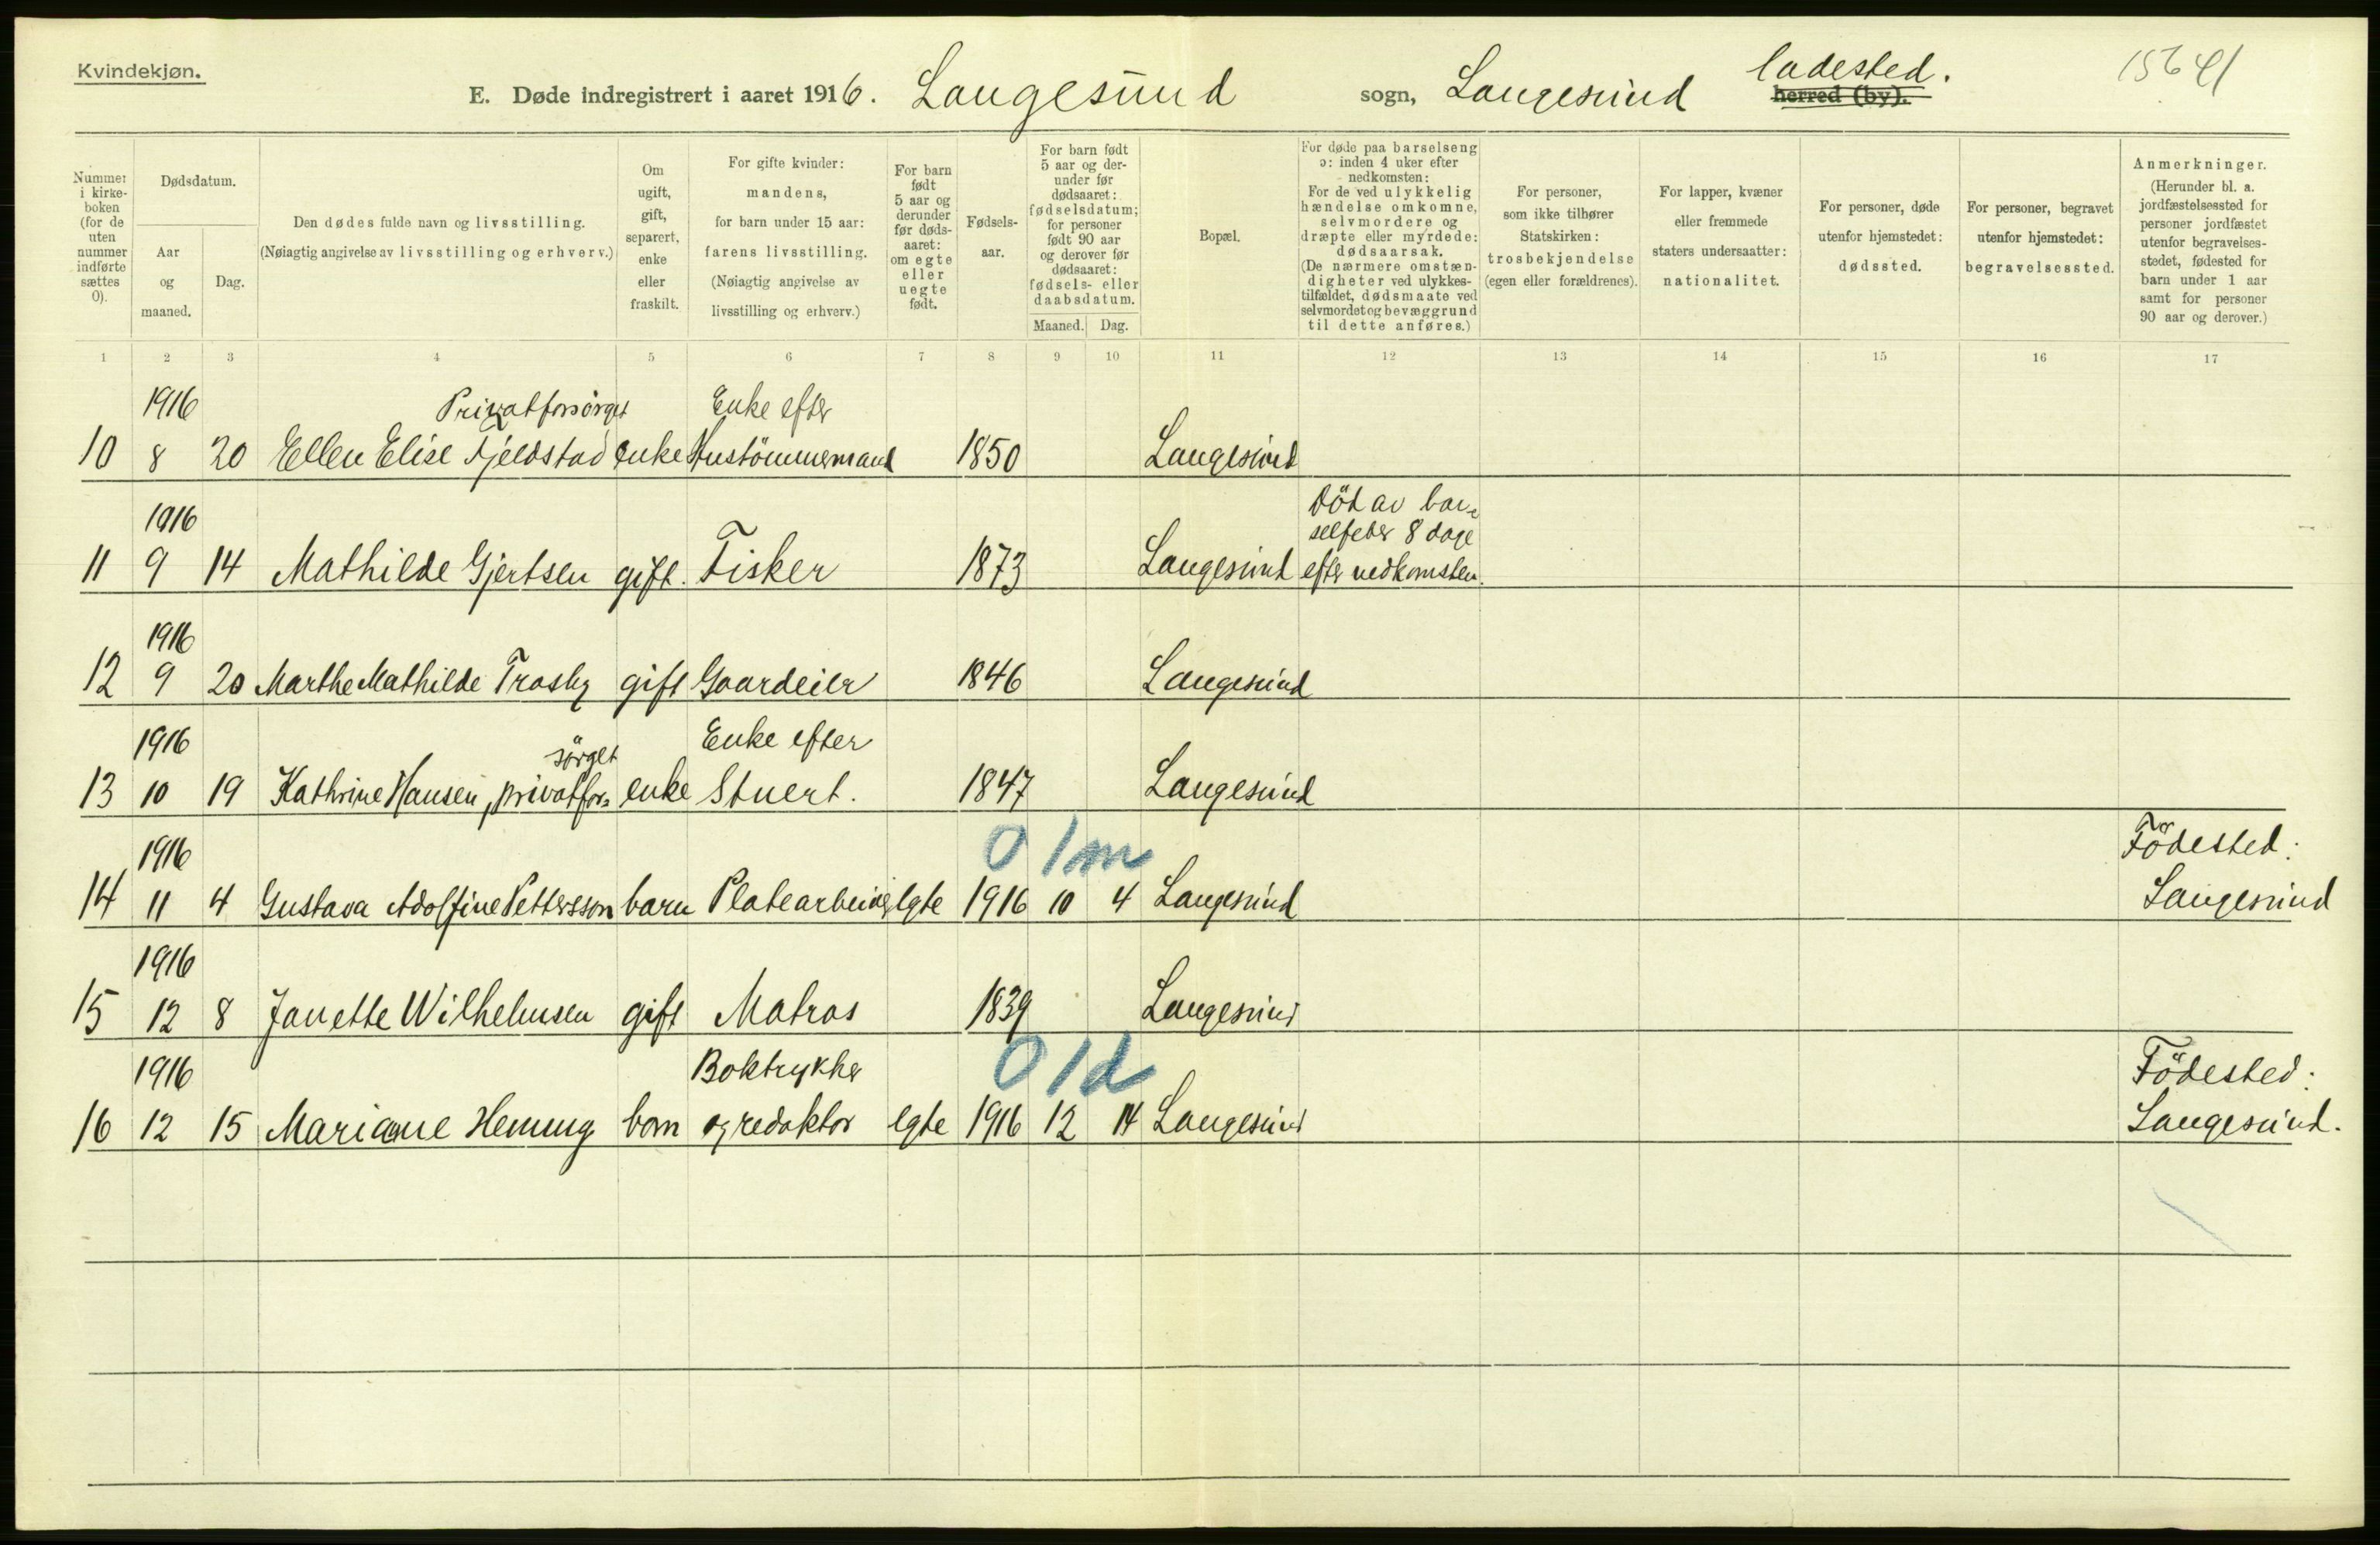 Kvindekjøn.
E. Døde indregistrert i aaret 1916. Langesund sogn, Langesund ladested.
herred (by).
Nummer i kirkeboken (for de uten nummer indførte sættes 0).
Dødsdatum.
Aar og maaned.
Dag.
Den dødes fulde navn og livsstilling.
(Nøiagtig angivelse av livsstilling og erhverv.)
Om ugift, gift, separert, enke eller fraskilt.
For gifte kvinder: mandens, for barn under 15 aar: farens livsstilling.
(Nøiagtig angivelse av livsstilling og erhverv.)
For barn født 5 aar og derunder før dødsaaret: om egte eller uegte født.
Fødselsaar.
For barn født 5 aar og derunder før dødsaaret: fødselsdatum; for personer født 90 aar og derover før dødsaaret: fødsels- eller daabsdatum.
Maaned. Dag.
Bopæl.
For døde paa barselseng ɔ: inden 4 uker efter nedkomsten:
For de ved ulykkelig hændelse omkomne, selvmordere og dræpte eller myrdede: dødsaarsak.
(De nærmere omstændigheter ved ulykkestilfældet, dødsmaate ved selvmordet og bevæggrund til dette anføres.)
For personer, som ikke tilhører Statskirken: trosbekjendelse (egen eller forældrenes).
For lapper, kvæner eller fremmede staters undersaatter: nationalitet.
For personer, døde utenfor hjemstedet: dødssted.
For personer, begravet utenfor hjemstedet: begravelsessted.
Anmerkninger.
(Herunder bl. a. jordfæstelsessted for personer jordfæstet utenfor begravelsesstedet, fødested for barn under 1 aar samt for personer 90 aar og derover.)
1 2 3 4 5 6 7 8 9 10 11 12 13 14 15 16 17
1916 Privatforsörget Enke efter
10 8 20 Ellen Elise Fjeldstad enke Hustömmermand 1850 Langesund
1916 Död av bar-
selfeber 8 dage
11 9 14 Mathilde Gjertsen gift. Fisker 1873 Langesund efter nedkomsten.
1916
12 9 20 Marthe Mathilde Trosby gift Gaardeier 1846 Langesund
1916 sörget Enke efter
13 10 19 Kathrine Hansen, privatfor- enke Stuert. 1847 Langesund
1916 0 1m Födested:
14 11 4 Gustava Adolfine Pettersson barn Platearbeider egte 1916 10 4 Langesund Langesund
1916
15 12 8 Janette Wilhelmsen gift Matros 1839 Langesund
1916 Boktrykker 0 1d Födested:
16 12 15 Mariane Henning barn og redaktör egte 1916 12 14 Langesund Langesund.